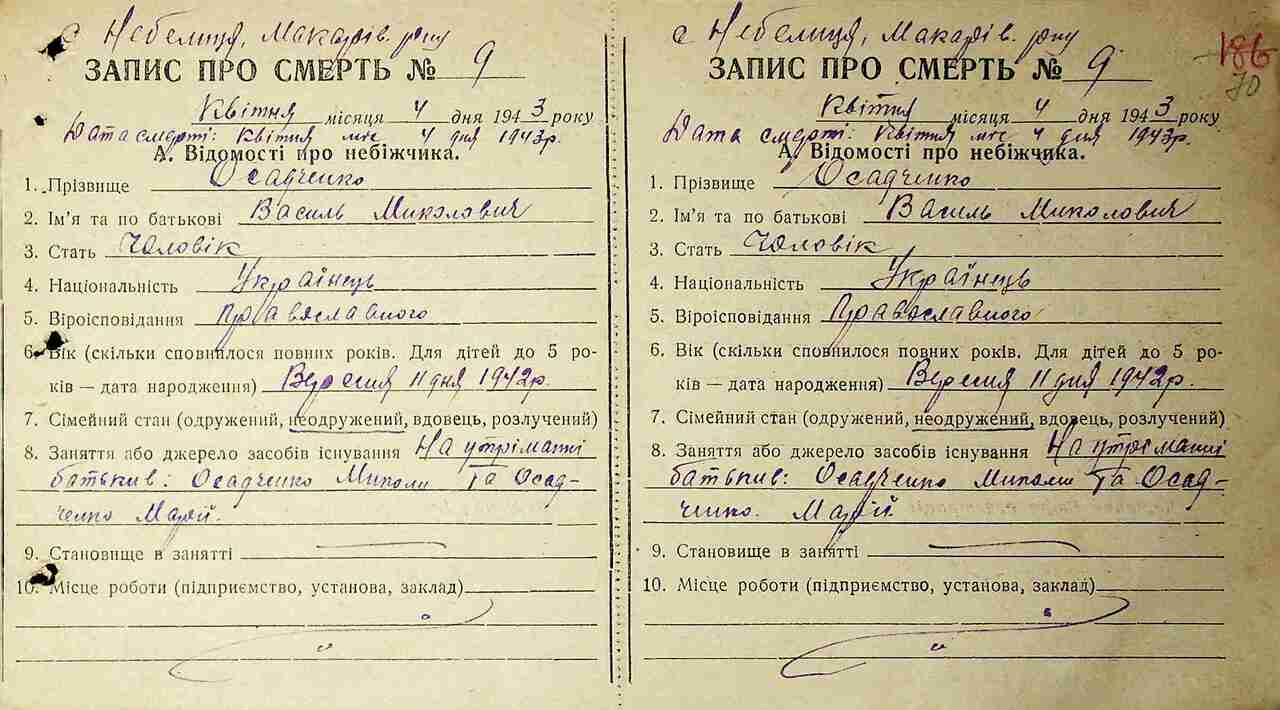 с Небелиця, Макарів. рону
ЗАПИС ПРО СМЕРТЬ № 9
Квітня місяця 4 дня 1943 року
Дата смерті: Квітня міс 4 дня 1943р.
А. Відомості про небіжчика.
1. Прізвище Осадченко
2. Ім'я та по батькові Василь Миколович
3. Стать Чоловік
4. Національність Українець
5. Віроісповідання Православного
6. Вік (скільки сповнилося повних років. Для дітей до 5 ро-
ків — дата народження) Вересня 11 дня 1942р.
7. Сімейний стан (одружений, неодружений, вдовець, розлучений)
8. Заняття або джерело засобів існування На утріманні
батьків: Осадченко Миколи Та Осад-
ченко Марії.
9. Становище в занятті
10. Місце роботи (підприємство, установа, заклад)
с Небелиця, Макарів. рону
186
70
ЗАПИС ПРО СМЕРТЬ № 9
Квітня місяця 4 дня 1943 року
Дата смерті: Квітня міс 4 дня 1943р.
А. Відомості про небіжчика.
1. Прізвище Осадченко
2. Ім'я та по батькові Василь Миколович
3. Стать Чоловік
4. Національність Українець
5. Віроісповідання Православного
6. Вік (скільки сповнилося повних років. Для дітей до 5 ро-
ків — дата народження) Вересня 11 дня 1942р.
7. Сімейний стан (одружений, неодружений, вдовець, розлучений)
8. Заняття або джерело засобів існування На утріманні
батьків: Осадченко Миколи Та Осад-
ченко. Марії.
9. Становище в занятті
10. Місце роботи (підприємство, установа, заклад)